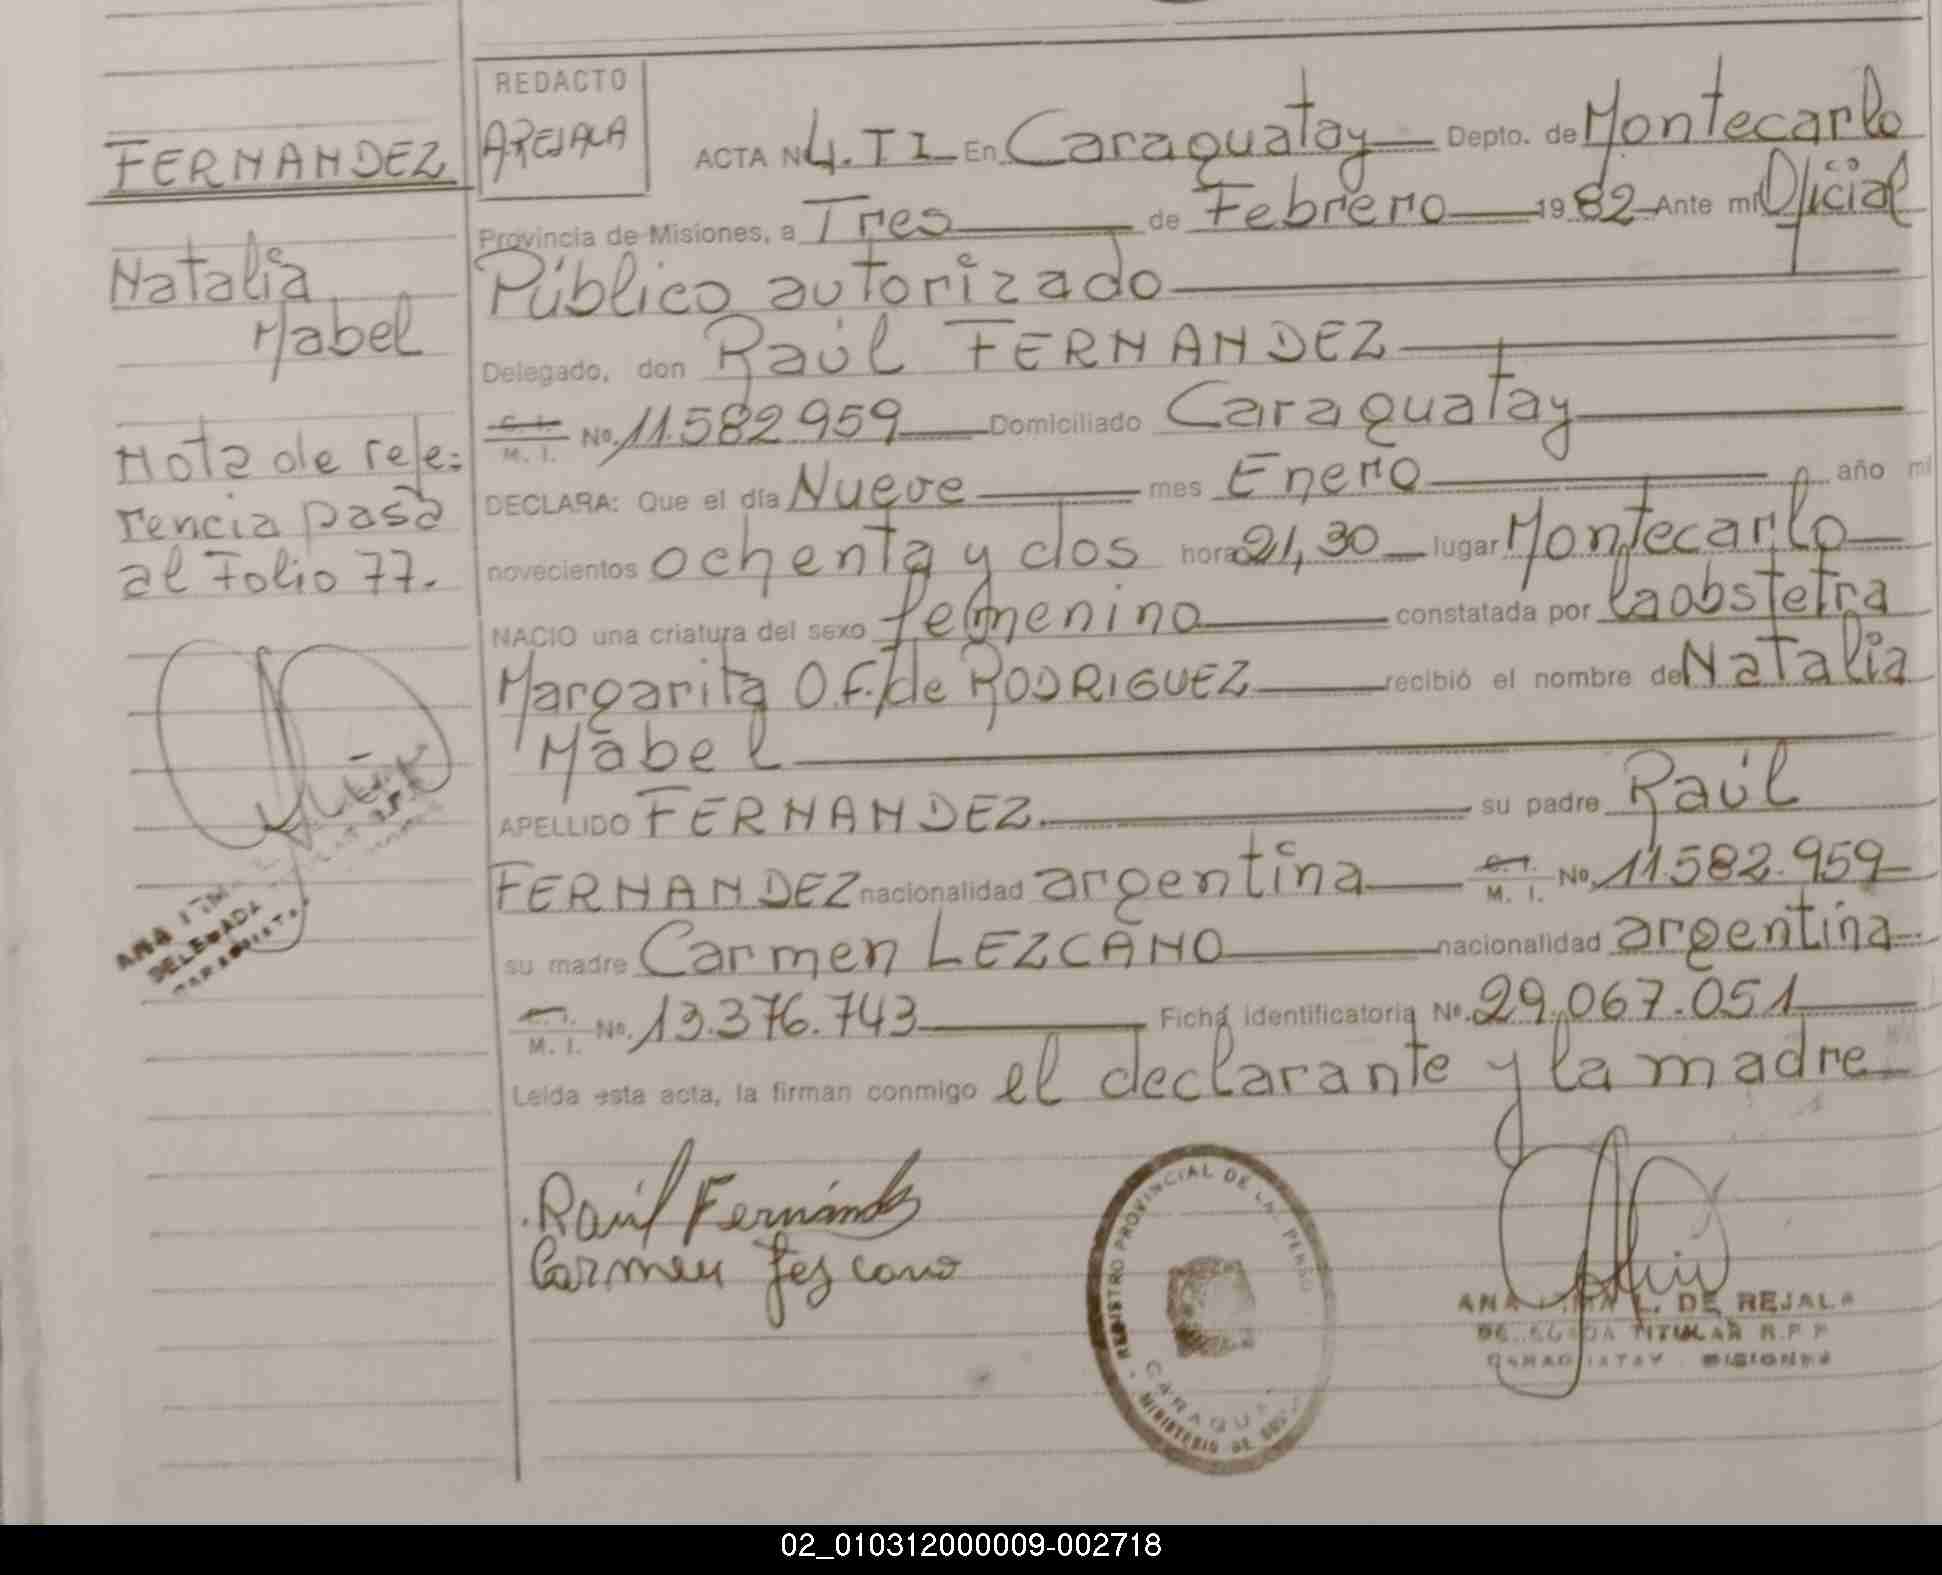 FERNANDEZ
Natalia
Mabel
Nota de refe=
rencia pasa
al Folio 77.
ANA
DELEGADA
REDACTO
AREJALA
ACTA N 4. TI En Caraguatay Depto. de Montecarlo
Provincia de Misiones, a Tres de Febrero 1982 Ante mi Oficial
Público autorizado
Delegado, don Raúl FERNANDEZ
C. I. M. I. No. 11.582.959 Domiciliado Caraguatay
DECLARA: Que el día Nueve mes Enero año mi
novecientos ochenta y dos hora 21,30 lugar Montecarlo
NACIO una criatura del sexo femenino constatada por la obstetra
Margarita O.F. de RODRIGUEZ recibió el nombre de Natalia
Mabel
APELLIDO FERNANDEZ su padre Raúl
FERNANDEZ nacionalidad argentina C. I. M. I. No. 11.582.959
su madre Carmen LEZCANO nacionalidad argentina
C. I. M. I. No. 13.376.743 Ficha identificatoria No. 29.067.051
Leída esta acta, la firman conmigo el declarante y la madre
Raúl Fernández
Carmen Lezcano
REGISTRO PROVINCIAL DE LAS PERSO
CARAGUA
MINISTERIO DE GO
ANA L. DE REJALA
DELEGADA TITULAR R.P.P
CARAGUATAY MISIONES
02_010312000009-002718